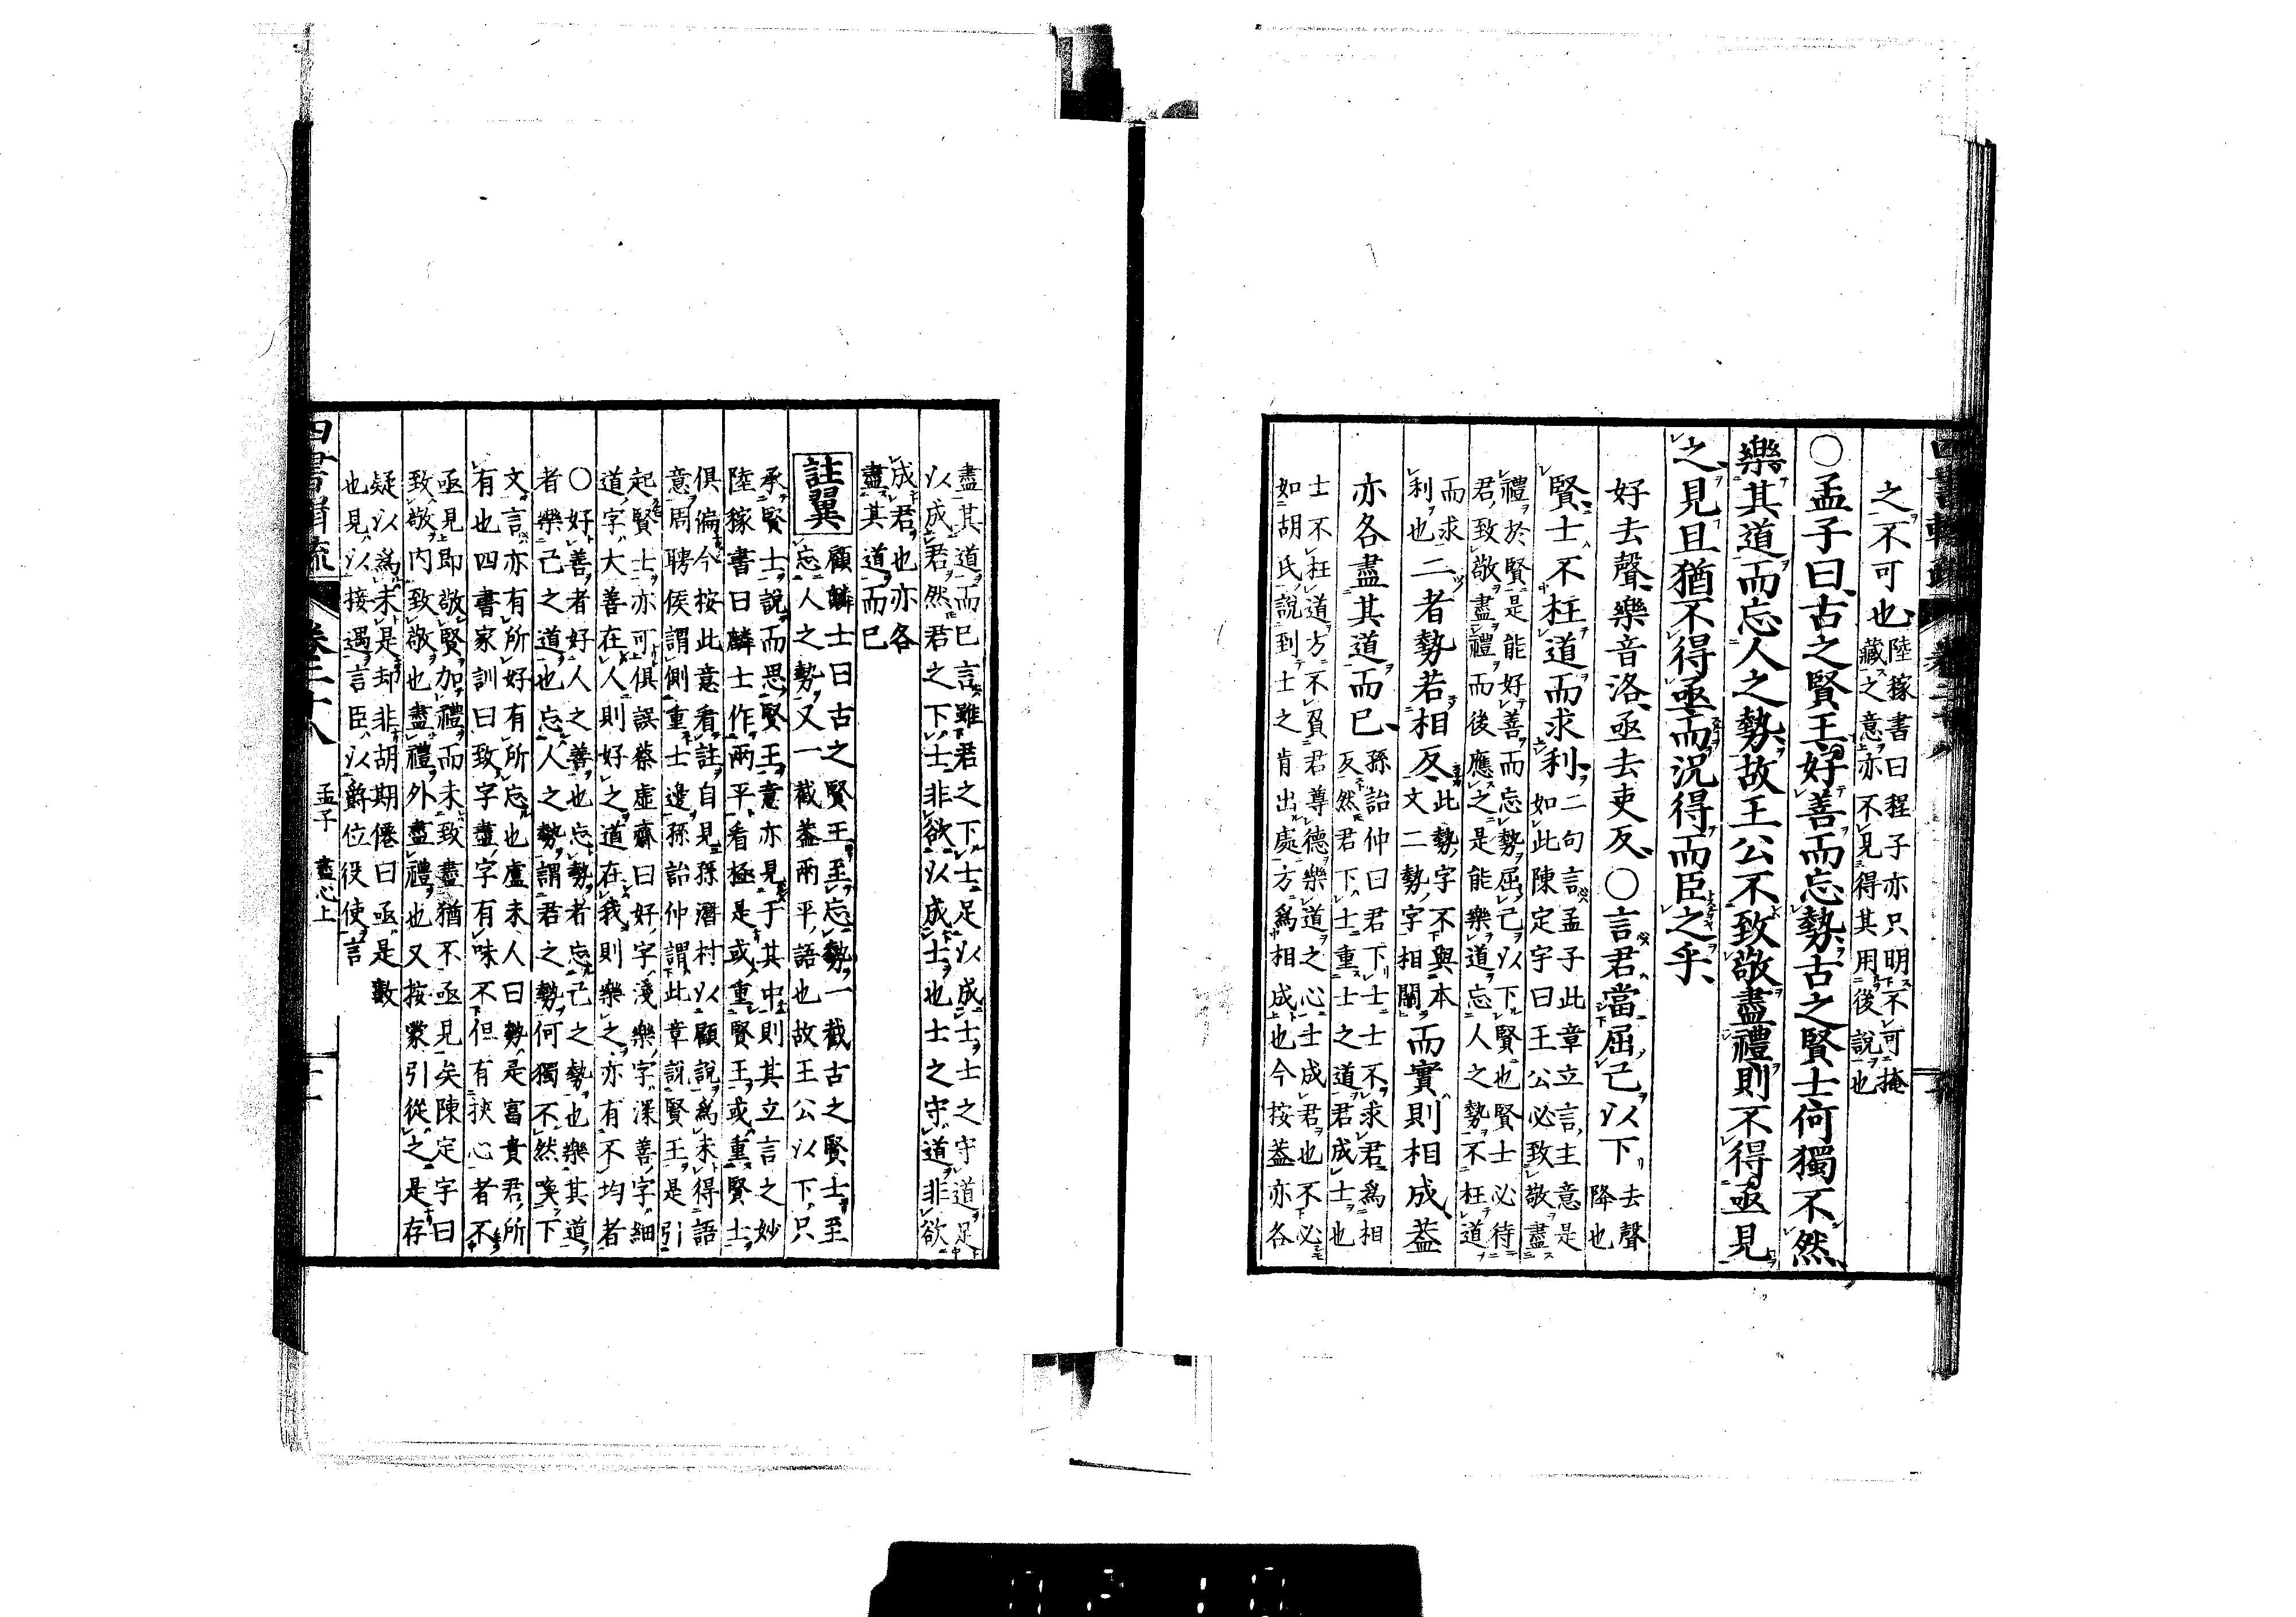 之不可也陸稼書曰程子亦只明不可掩
藏之意亦不見得其用後說也
○孟子曰古之賢王好善而忘勢古之賢士何獨不然
樂其道而忘人之勢故王公不致敬盡禮則不得亟見
之見且猶不得亟而況得而臣之乎
好去聲樂音洛亟去吏反○言君當屈己以下去聲
降也
賢士不枉道而求利二句言孟子此章立言主意是
如此陳定宇曰王公必致敬盡
禮於賢是能好善而忘勢屈己以下賢也賢士必待
君致敬盡禮而後應之是能樂道忘人之勢不枉道
而求
利也二者勢若相反此勢字不與本
文二勢字相關而實則相成蓋
亦各盡其道而已孫詒仲曰君下士士不求君爲相
反然君下士重士之道君成士也
士不枉道方不負君尊德樂道之心士成君也不必
如胡氏說到士之肯出處方爲相成也今按蓋亦各
盡其道而已言雖君之下士足以成士士之守道足
以成君然君之下士非欲以成士也士之守道非欲
成君也亦各
盡其道而已
註翼
顧麟士曰古之賢王至忘勢一截古之賢士至
忘人之勢又一截蓋兩平語也故王公以下只
承賢士說而思賢王意亦見于其中則其立言之妙
陸稼書曰麟士作兩平看極是或重賢王或重賢士
俱偏今按此意看註自見孫潛村以顧說爲未得語
意周聘侯謂側重士邊孫詒仲謂此章說賢王是引
起賢士亦可俱誤蔡虛齋曰好字淺樂字深善字細
道字大善在人則好之道在我則樂之亦有不均者
○好善者好人之善也忘勢者忘己之勢也樂其道
者樂己之道也忘人之勢謂君之勢何獨不然喚下
文言亦有所好有所忘也盧未人曰勢是富貴君所
有也四書家訓曰致字盡字有味不但有挾心者不
亟見即敬賢加禮而未致盡猶不亟見矣陳定宇曰
致敬内致敬也盡禮外盡禮也又按蒙引從之是存
疑以爲未是却非胡期僊曰亟是數
也見以接遇言臣以爵位役使言
孟子 盡心上